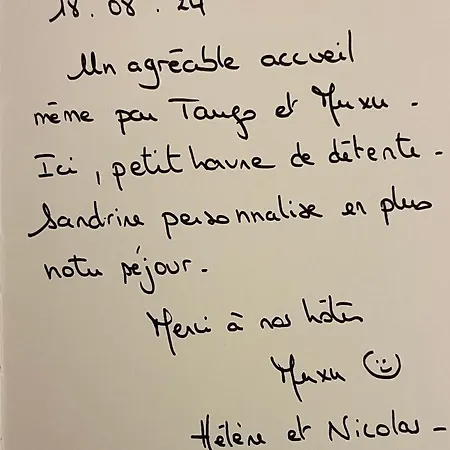 18.08.24
Un agréable accueil
même par Tango et Muxu.
Ici, petit havre de détente.
Sandrine personnalise en plus
notre séjour.
Merci à nos hôtes
Muxu ☺
Hélène et Nicolas -